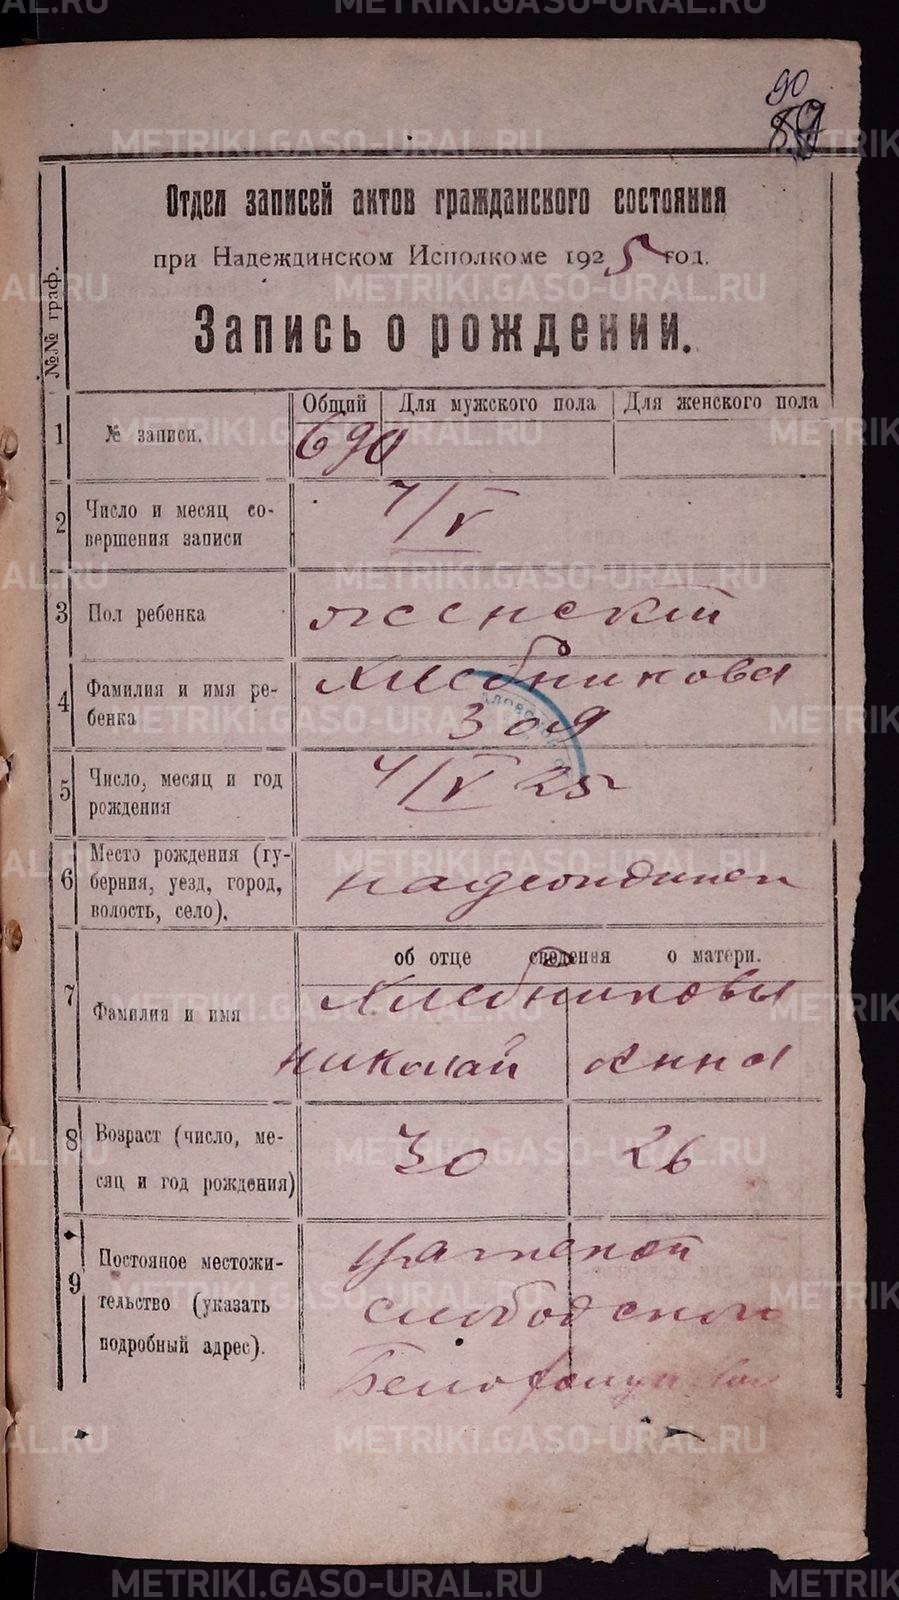 90
89
Отдел записей актов гражданского состояния
при Надеждинском Исполкоме 1925 год.
Запись о рождении.
№№ граф.
Общий Для мужского пола Для женского пола
1 № записи. 690
2 Число и месяц со-
вершения записи
/V
3 Пол ребенка женский
4 Фамилия и имя ре-
бенка
Хлебникова
Зоя
5 Число, месяц и год
рождения
/V 25
6 Место рождения (гу-
берния, уезд, город,
волость, село).
об отце сведения о матери.
7 Фамилия и имя
Хлебниковы
Николай Анна
8 Возраст (число, ме-
сяц и год рождения)
30 26
9 Постояное местожи-
тельство (указать
подробный адрес).
Вятской
слободского
METRIKI.GASO-URAL.RU